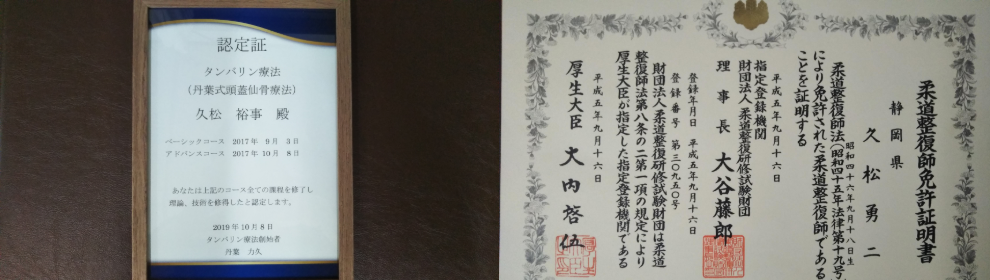 認定証
タンバリン療法
(丹葉式頭蓋仙骨療法)
久松 裕事 殿
ベーシックコース 2017年 9月 3日
アドバンスコース 2017年 10月 8日
あなたは上記のコース全ての課程を修了し
理論、技術を修得したと認定します。
2019年10月8日
タンバリン療法創始者
丹葉 力久
柔道整復師免許証明書
静岡県
久松勇二
昭和四十六年九月十八日生
柔道整復師法(昭和四十五年法律第十九号)
により免許された柔道整復師である
ことを証明する
平成五年九月十六日
指定登録機関
財団法人柔道整復研修試験財団
理事長 大谷藤郎
登録年月日 平成五年九月十六日
登録番号 第三〇九五〇号
財団法人柔道整復研修試験財団は柔道
整復師法第八条の二第一項の規定により
厚生大臣が指定した指定登録機関である
平成五年九月十六日
厚生大臣 大内啓伍